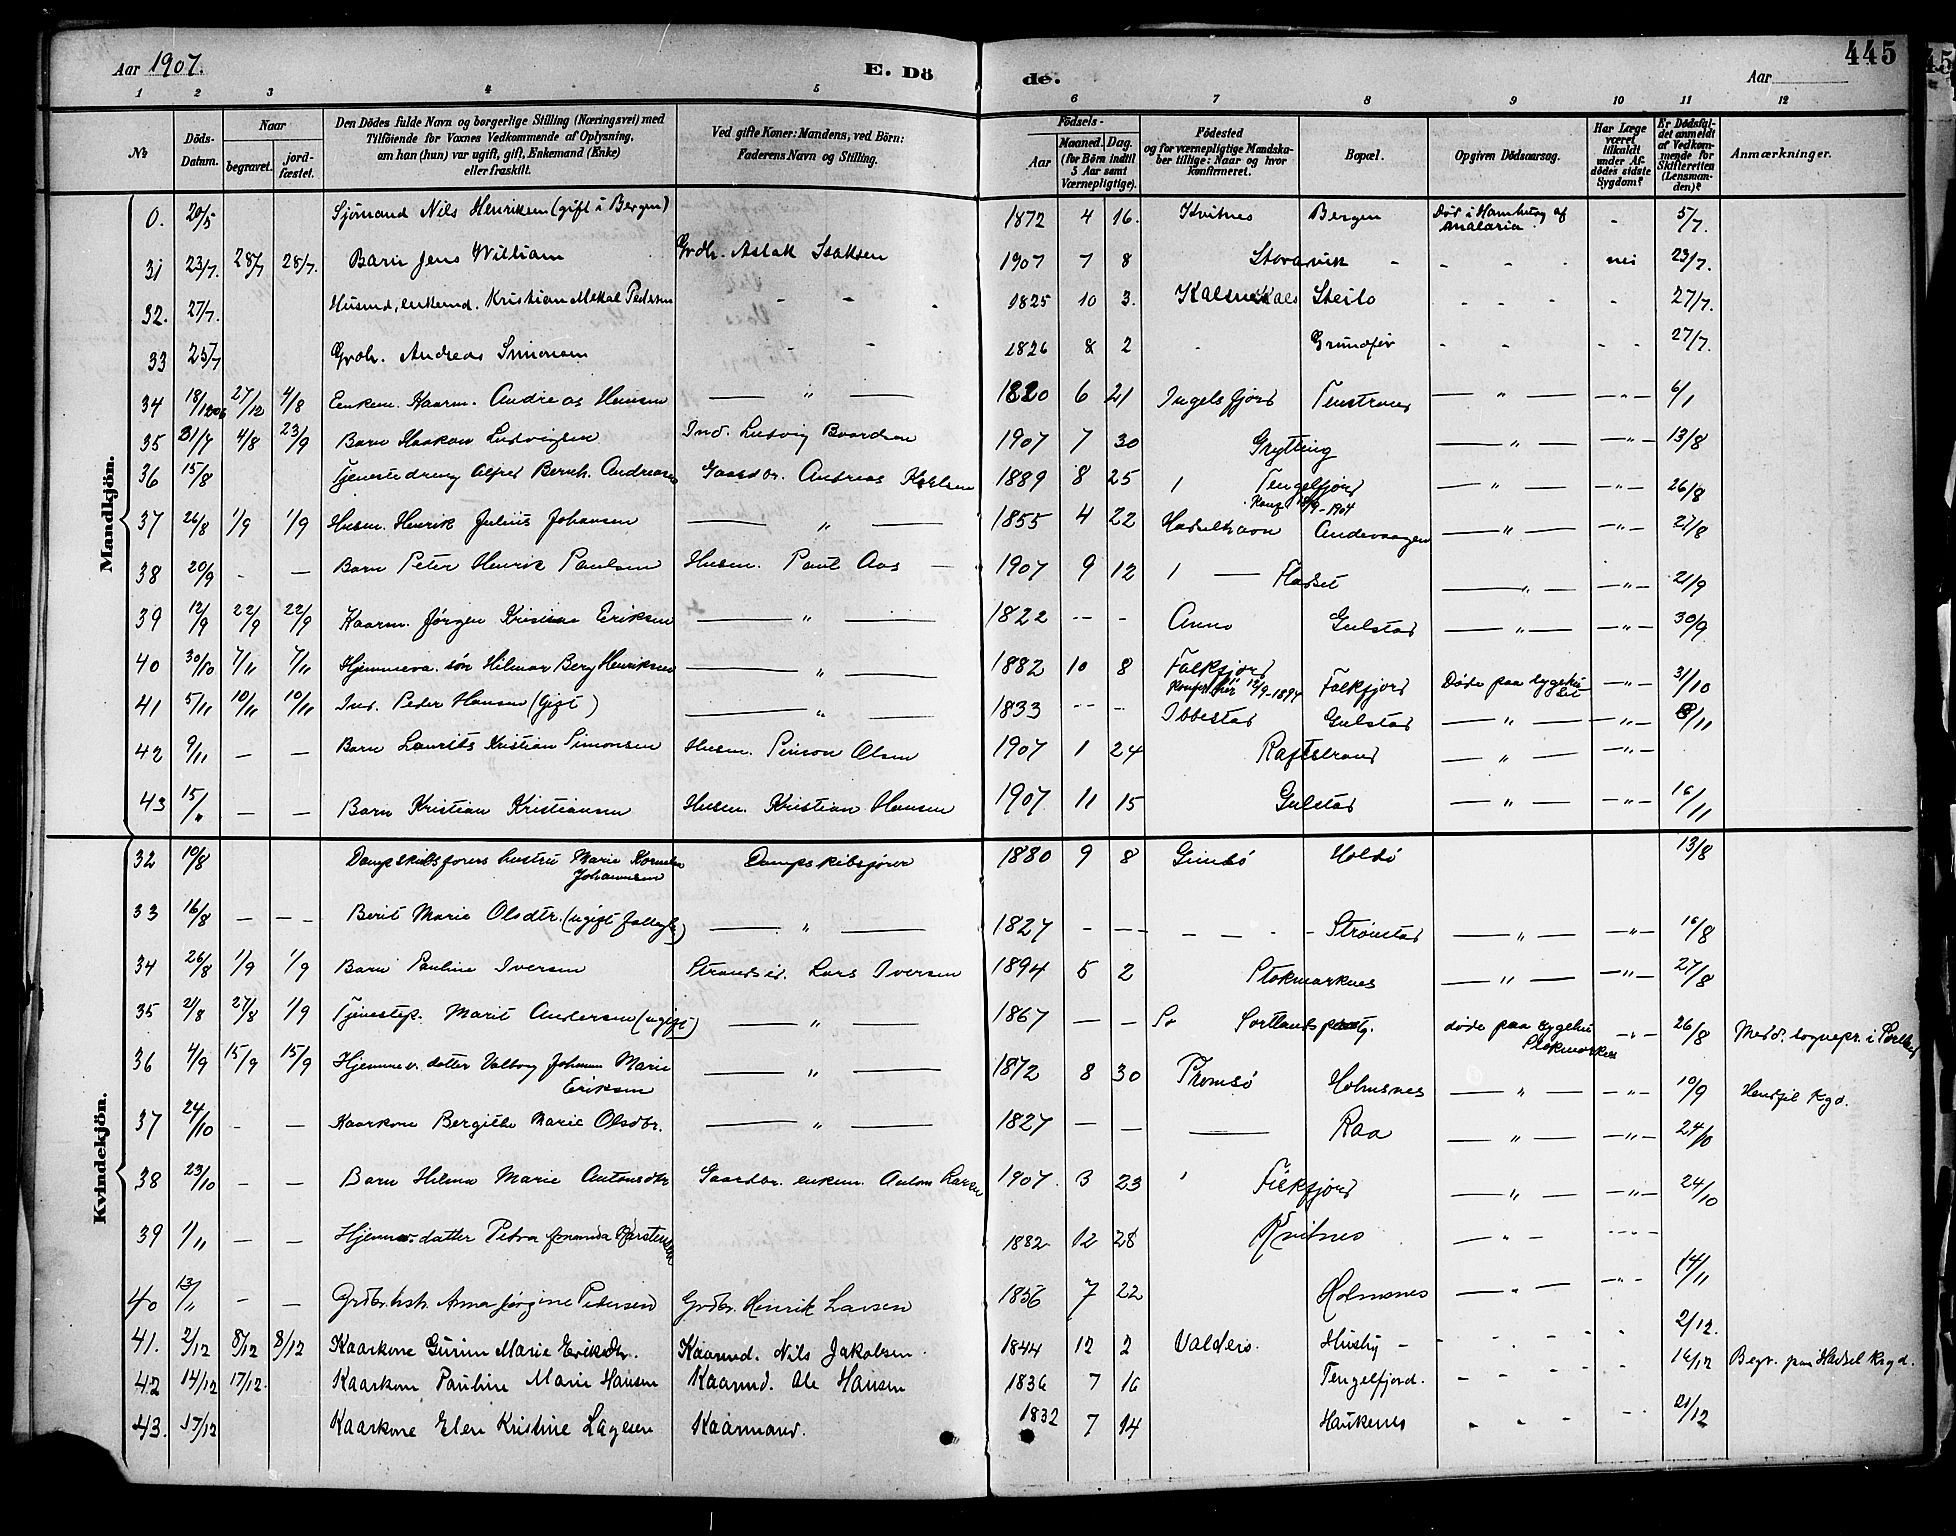 Aar 1907.
E. Dö de.
Aar
445
1 2 3 4 5 6 7 8 9 10 11 12
No
Döds-Datum.
Naar
begravet.
jord-fæstet.
Den Dödes fulde Navn og borgerlige Stilling (Næringsvei) med
Tilföiende for Voxnes Vedkommende af Oplysning,
om han (hun) var ugift, gift, Enkemand (Enke)
eller fraskilt.
Ved gifte Koner: Mandens, ved Börn:
Faderens Navn og Stilling.
Födsels-
Aar
Maaned. Dag.
(for Börn indtil
5 Aar samt
Værnepligtige).
Födested
og for værnepligtige Mandska-
ber tillige: Naar og hvor
konfirmeret.
Bopæl.
Opgiven Dödsaarsag.
Har Læge
været
tilkaldt
under Af-
dödes sidste
Sygdom?
Er Dödsfal-
det anmeldt
af Vedkom-
mende for
Skifteretten
(Lensman-
den)?
Anmærkninger.
Mandkjön.
0. 20/5 Sjømand Nils Henriksen (gift i Bergen) 1872 4 16. Kvitnes Bergen Død i Hamburg af malaria. - 5/7.
31 23/7. 28/7 28/7. Barn Jens William Grdbr. Aslak Isaksen 1907 7 8 Storavik - - - - nei 23/7.
32. 27/7. Husmd, enkemd. Kristian Mekal Pedersen - - - 1825 10 3. Kalsnes Steilo - - - - 27/7.
33 25/7 Grdbr. Andreas Simonsen - - 1826 8 2 - Grundfør - - - - - 27/7.
34 18/12 06 27/12 4/8 Enkem. Kaarm. Andreas Hansen — " — 1820 6 21 Ingelsfjord Tenstrand — " — — " — 6/1
35 31/7 4/8 23/9 Barn Haakon Ludvigsen Ind. Ludvig Baardsen 1907 7 30 Grytting — " — — " — 13/8
36 15/8 Tjenestedreng Alfred Bernh. Andreasen Gaardbr. Andreas Karlsen 1889 8 25 Tengelfjord — " — — " — 26/8
Konf. 18/9-1904
37 26/8 1/9 1/9 Husm. Henrik Julius Johansen — " — 1855 4 22 Hadselhavn Andersvaagen — " — — " — 27/8
38 20/9 - — Barn Peter Henrik Paulsen Husm. Paul Aas — 1907 9 12 — Fladset — " — — " — 21/9
39 12/9 22/9 22/9 Kaarm. Jørgen Kristian Eriksen — " — 1822 - - - Anno Gulstad — " — — " — 30/9
40 30/10 7/11 7/11 Hjemmeva. søn Hilmar Berg Henriksen — " — 1882 10 8 Falkfjord Falkfjord Døde paa sygehuset — " — 31/10
konfert her 12/9-1897
41 5/11 10/11 10/11 Ind. Peder Hansen (gift) — " — 1833 - - - Ibbestad Gulstad — " — — " — 8/11
42 9/11 — — Barn Laurits Kristian Simonsen Husm. Simon Olsen 1907 1 24 Raftstrand — " — — " —
43 15/" — — Barn Kristian Kristiansen Husm. Kristian Hansen 1907 11 15 Gulstad — " — — " — 16/11
Kvindekjön.
32 10/8 Dampskibsførers hustru Marie Johannesen Dampskibsfører 1880 9 8 Gimsø Holdø 13/8
33 16/8 — — — Berit Marie Olsdtr. (ugift — " — 1827 - - - - - - Strømstad — " — — " — 16/8
34 26/8 1/9 1/9 Barn Pauline Iversen Strandsid. Lars Iversen 1894 5 2 Stokmarknes — " — — " — 27/8
35 21/8 27/8 1/9 Tjenestep. Marit Andersen (ugift) — " — 1867 — — Sortlands døde paa sygehus Stokmarknes - " - 26/8 Medd. sognepr. i Sortland
36 4/9 15/9 15/9 Hjemmev. datter Valborg Johanna Marie Eriksen — " — 1872 8 30 Tromsø Holmsnes — " — — " — 10/9 Kgd.
37 24/10 - — Kaarkone Bergitte Marie Olsdtr. — " — 1827 — — — Raa — " — — " — 24/10
38 23/10 — — Barn Helma Marie Antonsdtr Gaardbr. enkem. Anton Larsen 1907. 3 23 Filkfjord — " — — " — 24/10
39 1/11 — — Hjemmev. datter Petra Karstensen 1882 12 28 Kvitnes — " — - " -
40 13/" — — Grdbr.hstr. Anna Jørgine Pedersen Grdbr. Henrik Larsen 1856 7 22 Holmsnes — " — - " - 14/11
41. 2/12 8/12 8/12 Kaarkone Gurine Marie Eriksdtr. Kaarmd. Nils Jakobsen. 1844 12 2 Valders. Husby - - - - - 2/12.
42 14/12 17/12. Kaarkone Pauline Marie Hansen Kaarmd. Ole Hansen 1836 7 16 Tengelfjord. - - - - 16/12 Begr. paa Hadsel Kgd.
43. 17/12 Kaarkone Elen Kristine Lagesen Kaarmand. 1832 7 14 Haukenes - - - - 21/12